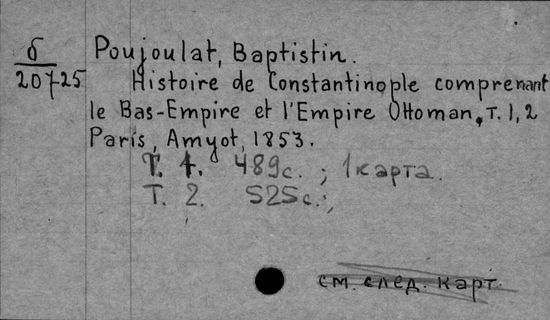 б
20725
Poujoulat, Baptistin.
Histoire de Constantinople comprenant
le Bas-Empire et l'Empire Ottoman, T. 1, 2
Paris, Amyot, 1853.
Т. 1. 489с. ; 1 карта.
Т. 2. 525с.;
см. след. карт.